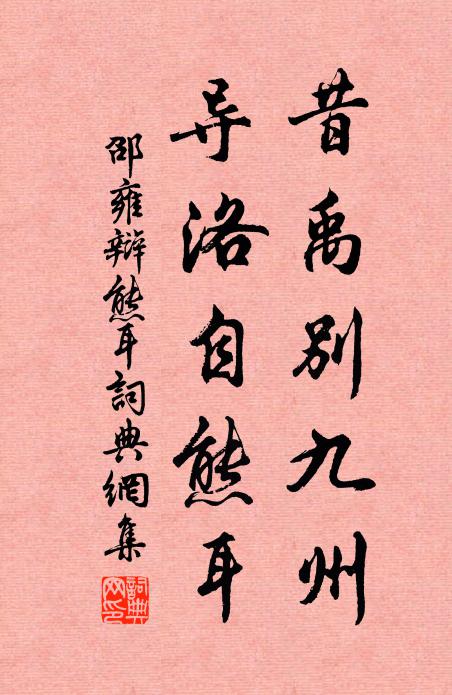 昔禹别九州
导洛自熊耳
邵雍辩熊耳詞典網集
詞典網印